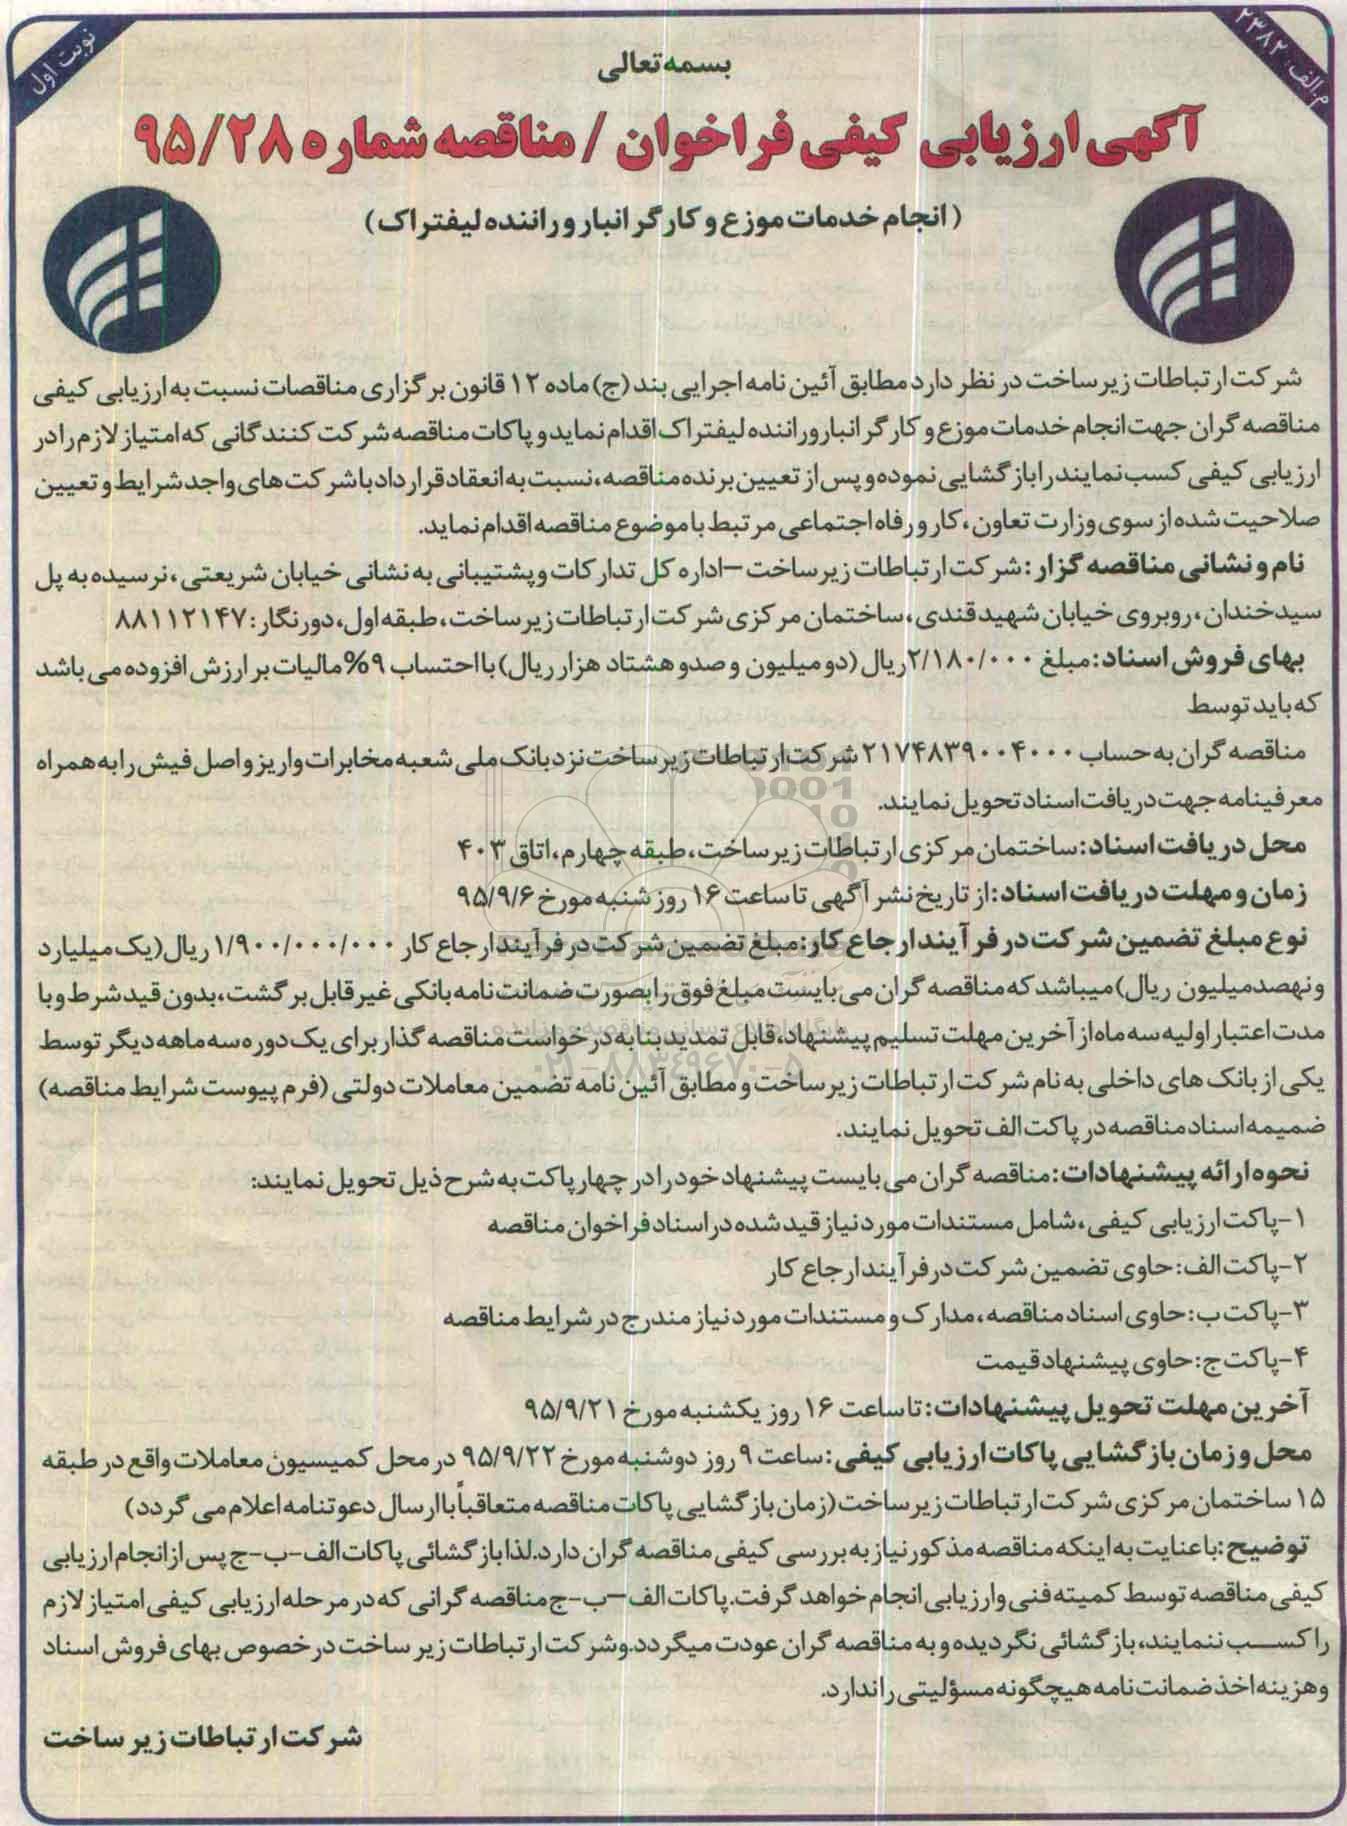 م.الف: ۲۳۸۲
نوبت اول
بسمه تعالی
آگهی ارزیابی کیفی فراخوان / مناقصه شماره ۹۵/۲۸
(انجام خدمات موزع و کارگر انبار و راننده لیفتراک)
شرکت ارتباطات زیرساخت در نظر دارد مطابق آئین نامه اجرایی بند (ج) ماده ۱۲ قانون برگزاری مناقصات نسبت به ارزیابی کیفی
مناقصه گران جهت انجام خدمات موزع و کارگر انبار و راننده لیفتراک اقدام نماید و پاکات مناقصه شرکت کنندگانی که امتیاز لازم را در
ارزیابی کیفی کسب نمایند را بازگشایی نموده و پس از تعیین برنده مناقصه، نسبت به انعقاد قرارداد با شرکت های واجد شرایط و تعیین
صلاحیت شده از سوی وزارت تعاون، کار و رفاه اجتماعی مرتبط با موضوع مناقصه اقدام نماید.
نام و نشانی مناقصه گزار: شرکت ارتباطات زیرساخت –اداره کل تدارکات و پشتیبانی به نشانی خیابان شریعتی، نرسیده به پل
سیدخندان، روبروی خیابان شهید قندی، ساختمان مرکزی شرکت ارتباطات زیرساخت، طبقه اول، دورنگار: ۸۸۱۱۲۱۴۷
بهای فروش اسناد: مبلغ ۲/۱۸۰/۰۰۰ ریال (دو میلیون و صد و هشتاد هزار ریال) با احتساب ۹% مالیات بر ارزش افزوده می باشد
که باید توسط
مناقصه گران به حساب ۲۱۷۴۸۳۹۰۰۴۰۰۰ شرکت ارتباطات زیرساخت نزد بانک ملی شعبه مخابرات واریز و اصل فیش را به همراه
معرفینامه جهت دریافت اسناد تحویل نمایند.
محل دریافت اسناد: ساختمان مرکزی ارتباطات زیرساخت، طبقه چهارم، اتاق ۴۰۳
زمان و مهلت دریافت اسناد: از تاریخ نشر آگهی تا ساعت ۱۶ روز شنبه مورخ ۹۵/۹/۶
نوع مبلغ تضمین شرکت در فرآیند ارجاع کار: مبلغ تضمین شرکت در فرآیند ارجاع کار ۱/۹۰۰/۰۰۰/۰۰۰ ریال (یک میلیارد
و نهصد میلیون ریال) میباشد که مناقصه گران می بایست مبلغ فوق را بصورت ضمانت نامه بانکی غیر قابل برگشت، بدون قید شرط و با
مدت اعتبار اولیه سه ماه از آخرین مهلت تسلیم پیشنهاد، قابل تمدید بنا به درخواست مناقصه گذار برای یک دوره سه ماهه دیگر توسط
یکی از بانک های داخلی به نام شرکت ارتباطات زیرساخت و مطابق آئین نامه تضمین معاملات دولتی (فرم پیوست شرایط مناقصه)
ضمیمه اسناد مناقصه در پاکت الف تحویل نمایند.
نحوه ارائه پیشنهادات: مناقصه گران می بایست پیشنهاد خود را در چهار پاکت به شرح ذیل تحویل نمایند:
۱-پاکت ارزیابی کیفی، شامل مستندات مورد نیاز قید شده در اسناد فراخوان مناقصه
۲-پاکت الف: حاوی تضمین شرکت در فرآیند ارجاع کار
۳-پاکت ب: حاوی اسناد مناقصه، مدارک و مستندات مورد نیاز مندرج در شرایط مناقصه
۴-پاکت ج: حاوی پیشنهاد قیمت
آخرین مهلت تحویل پیشنهادات: تا ساعت ۱۶ روز یکشنبه مورخ ۹۵/۹/۲۱
محل و زمان بازگشایی پاکات ارزیابی کیفی: ساعت ۹ روز دوشنبه مورخ ۹۵/۹/۲۲ در محل کمیسیون معاملات واقع در طبقه
۱۵ ساختمان مرکزی شرکت ارتباطات زیرساخت (زمان بازگشایی پاکات مناقصه متعاقباً با ارسال دعوتنامه اعلام می گردد)
توضیح: با عنایت به اینکه مناقصه مذکور نیاز به بررسی کیفی مناقصه گران دارد. لذا بازگشائی پاکات الف-ب-ج پس از انجام ارزیابی
کیفی مناقصه توسط کمیته فنی و ارزیابی انجام خواهد گرفت. پاکات الف–ب-ج مناقصه گرانی که در مرحله ارزیابی کیفی امتیاز لازم
را کسب ننمایند، بازگشائی نگردیده و به مناقصه گران عودت میگردد. و شرکت ارتباطات زیر ساخت در خصوص بهای فروش اسناد
و هزینه اخذ ضمانت نامه هیچگونه مسؤلیتی را ندارد.
شرکت ارتباطات زیر ساخت